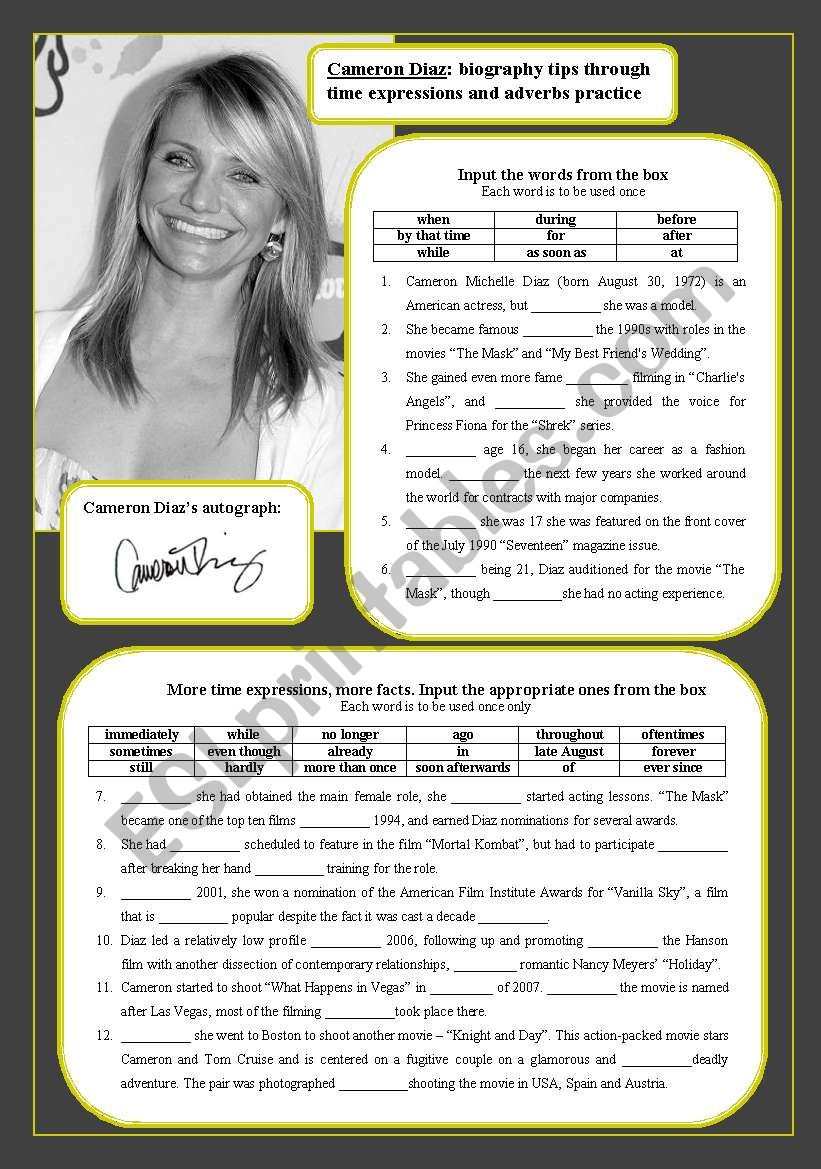 Cameron Diaz: biography tips through
time expressions and adverbs practice
Input the words from the box
Each word is to be used once
when during before
by that time for after
while as soon as at
1. Cameron Michelle Diaz (born August 30, 1972) is an
American actress, but __________ she was a model.
2. She became famous __________ the 1990s with roles in the
movies “The Mask” and “My Best Friend's Wedding”.
3. She gained even more fame _________ filming in “Charlie's
Angels”, and __________ she provided the voice for
Princess Fiona for the “Shrek” series.
4. __________ age 16, she began her career as a fashion
model. __________ the next few years she worked around
the world for contracts with major companies.
5. __________ she was 17 she was featured on the front cover
of the July 1990 “Seventeen” magazine issue.
6. __________ being 21, Diaz auditioned for the movie “The
Mask”, though __________she had no acting experience.
Cameron Diaz’s autograph:
Cameron Diaz
More time expressions, more facts. Input the appropriate ones from the box
Each word is to be used once only
immediately while no longer ago throughout oftentimes
sometimes even though already in late August forever
still hardly more than once soon afterwards of ever since
7. __________ she had obtained the main female role, she __________ started acting lessons. “The Mask”
became one of the top ten films __________ 1994, and earned Diaz nominations for several awards.
8. She had __________ scheduled to feature in the film “Mortal Kombat”, but had to participate __________
after breaking her hand __________ training for the role.
9. __________ 2001, she won a nomination of the American Film Institute Awards for “Vanilla Sky”, a film
that is __________ popular despite the fact it was cast a decade __________.
10. Diaz led a relatively low profile __________ 2006, following up and promoting __________ the Hanson
film with another dissection of contemporary relationships, _________ romantic Nancy Meyers’ “Holiday”.
11. Cameron started to shoot “What Happens in Vegas” in _________ of 2007. __________ the movie is named
after Las Vegas, most of the filming __________took place there.
12. __________ she went to Boston to shoot another movie – “Knight and Day”. This action-packed movie stars
Cameron and Tom Cruise and is centered on a fugitive couple on a glamorous and __________deadly
adventure. The pair was photographed __________shooting the movie in USA, Spain and Austria.
ESLprintables.com